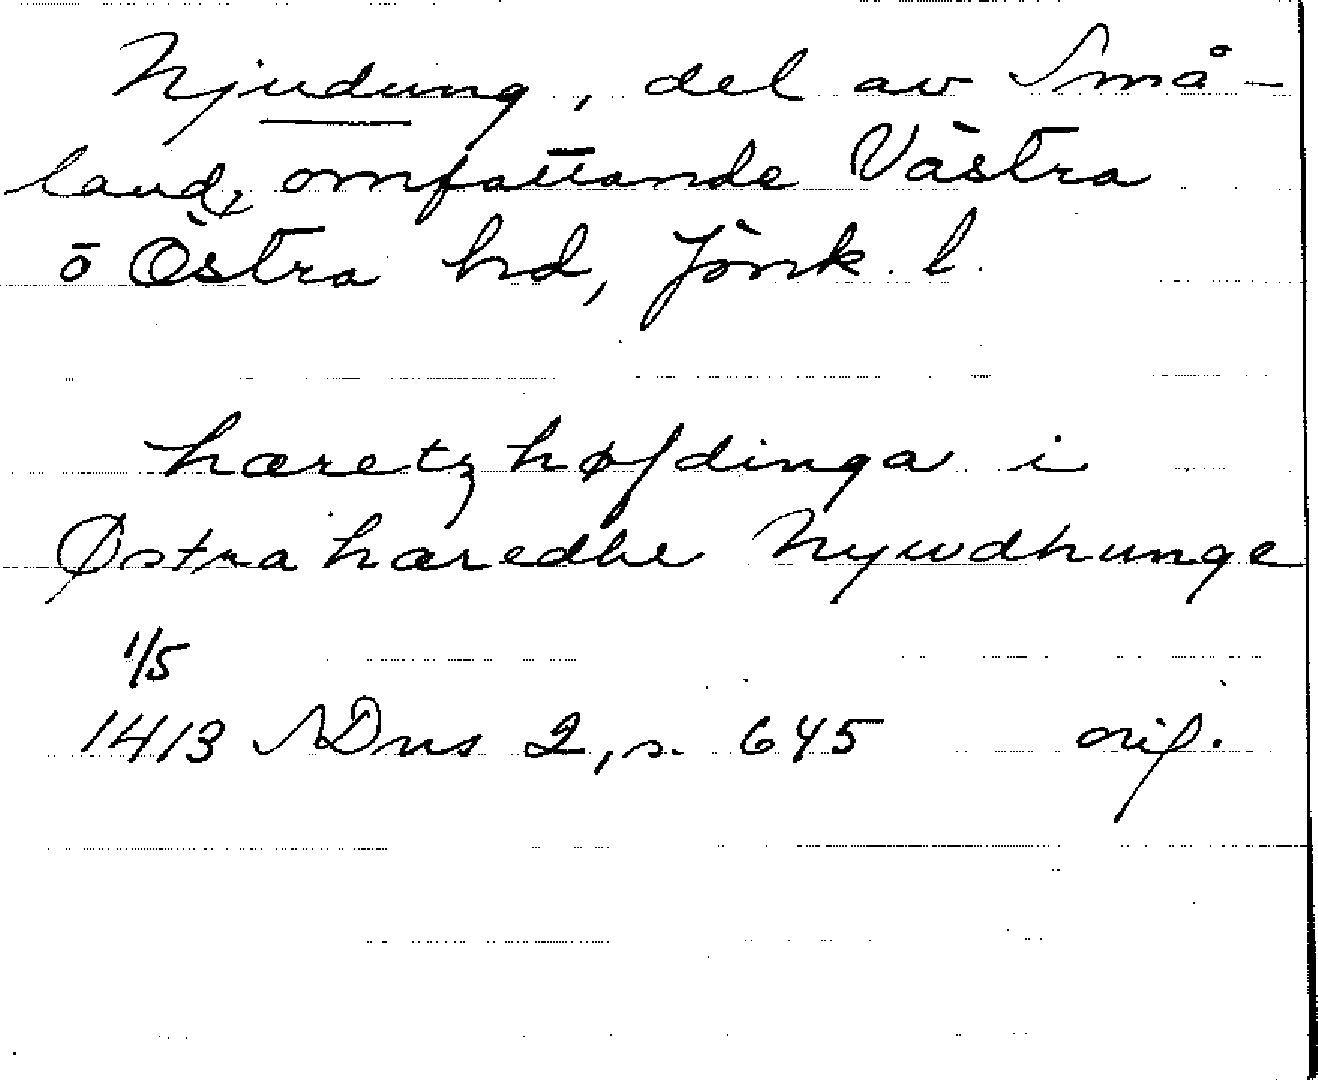 Njudung, del av Små-
land, omfattande Västra
o Östra hd, Jönk. l.
hæretzhøfdinga i
Østrahæredhe Nywdhunge
1/5
1413 SDns 2, s. 645 orig.